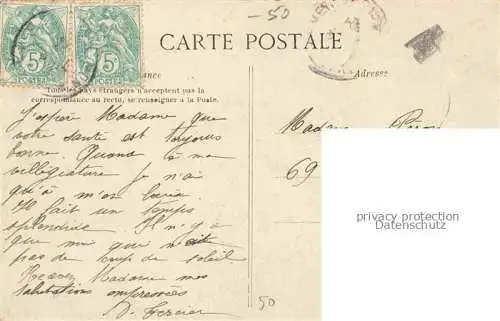 -50
CARTE POSTALE
Tous les pays étrangers n'acceptent pas la
correspondance au recto, se renseigner à la Poste.
Adresse
5c 5c
POSTES
J'espère Madame, que
votre santé est toujours
bonne. Quant à ma
villégiature je n'ai
qu'à m'en louer.
Il fait un temps
splendide. Il n'y a
que moi que n'ait
pas de coup de soleil.
Recevez Madame mes
salutations empressées
D. Tercier
Madame
69
privacy protection
Datenschutz
50